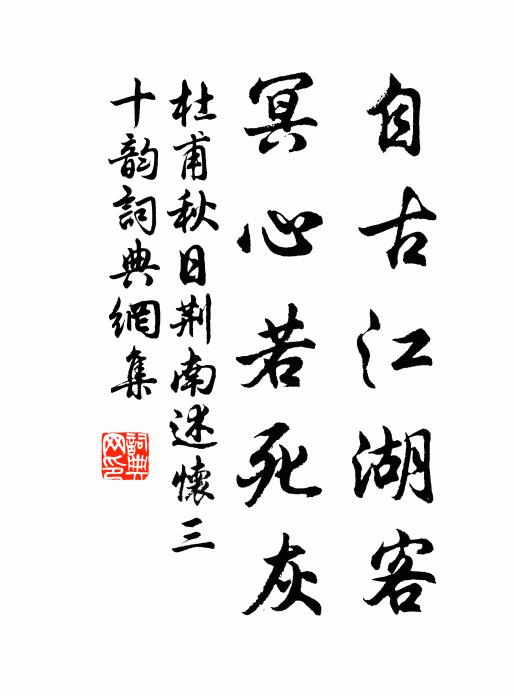 自古江湖客
冥心若死灰
杜甫秋日荆南述懷三
十韵詞典網集
詞典网印